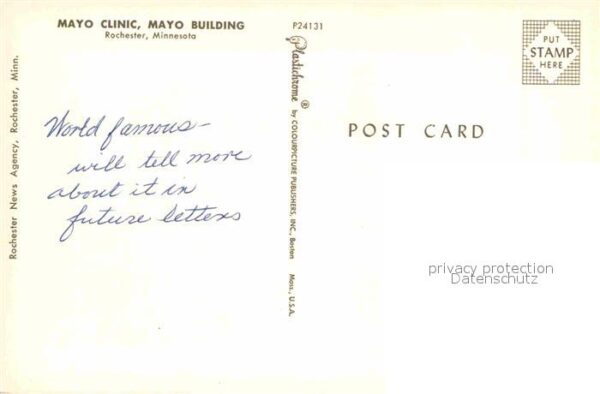 MAYO CLINIC, MAYO BUILDING
Rochester, Minnesota
P24131
PUT
STAMP
HERE
Rochester News Agency, Rochester, Minn.
World famous—
will tell more
about it in
future letters
Plastichrome® by COLOURPICTURE PUBLISHERS, INC., Boston Mass., U.S.A.
POST CARD
privacy protection
Datenschutz